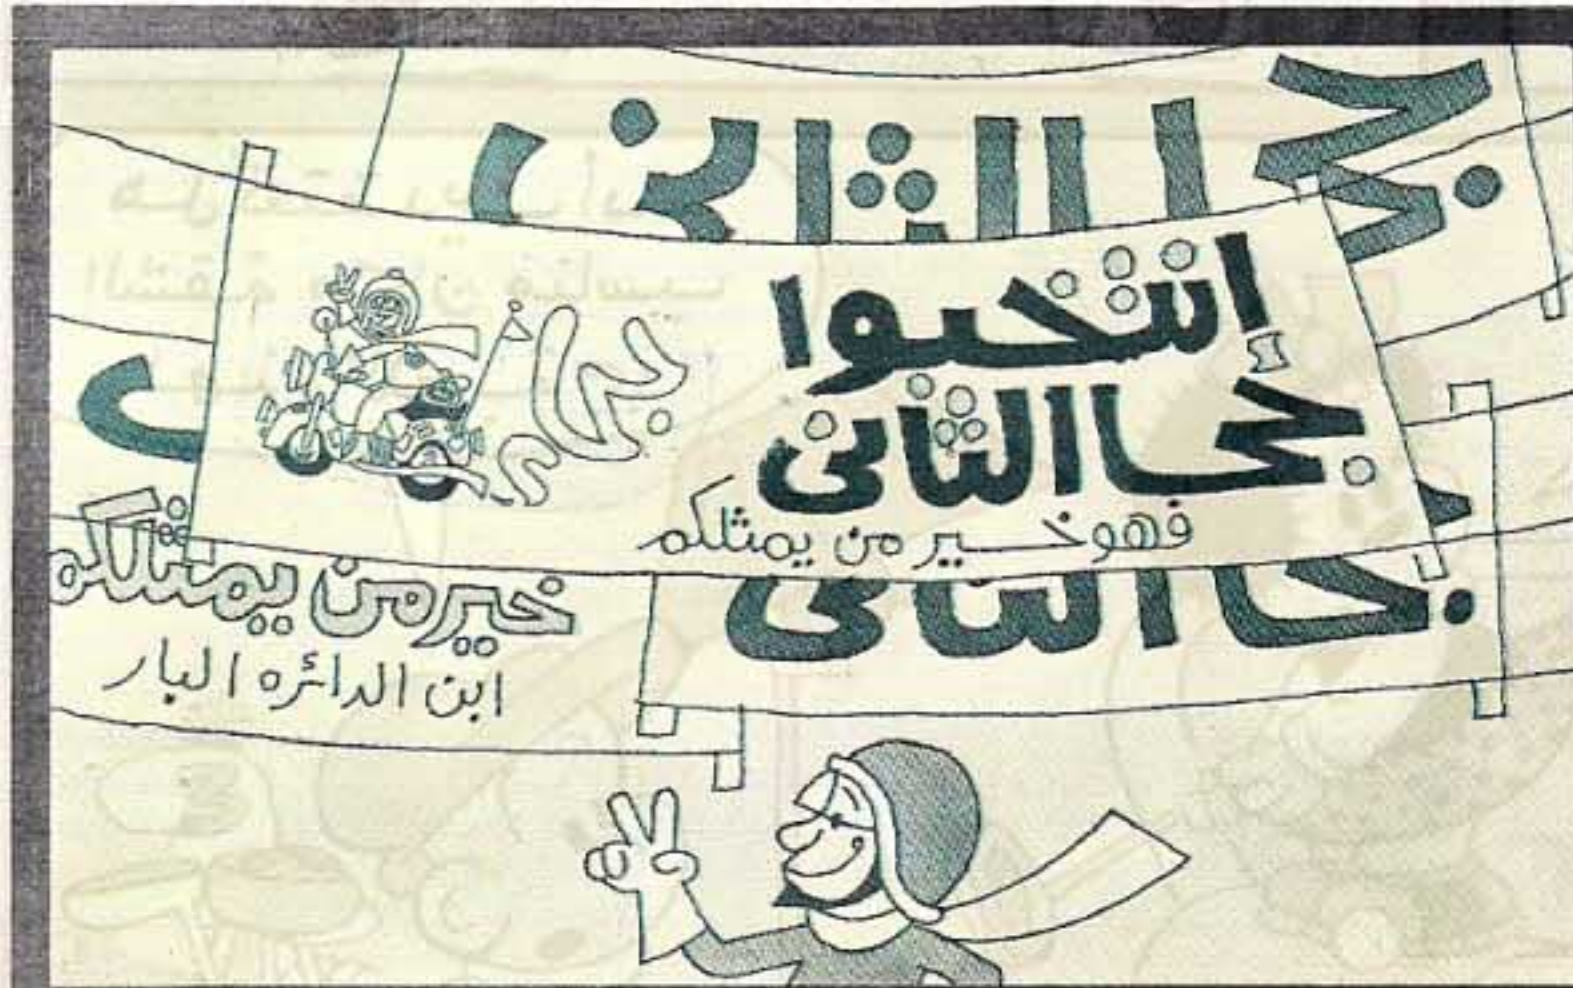 جحا الثانى
إنتخبوا
جحا الثانى
فهو خير من يمثلكم
جحا
جحا الثانى
خير من يمثلكم
ابن الدائره البار